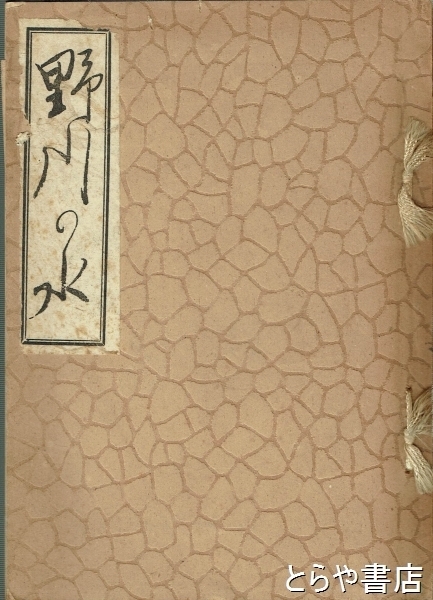 野川の水
とらや書店